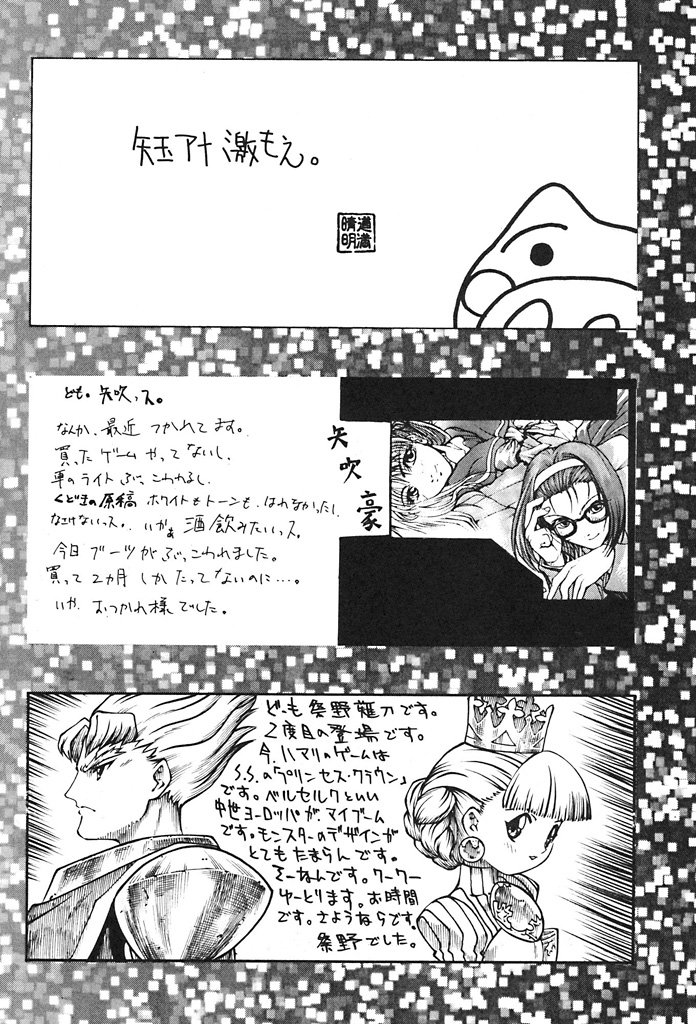 短アト激もえ。
道満
晴明
ども。矢吹っス。
なんか、最近 つかれてます。
買ったゲームやってないし、
車のライトぶっこわれるし、
原稿 ホワイトもトーンも、はれなかったし、
なさけないっス。いやぁ 酒飲みたいっス。
今日ブーツがぶっこわれました。
買って2カ月しかたってないのに…。
いや、おつかれ様でした。
矢吹豪
ども 祭野薙刀です。
2度目の登場です。
今、ハマりのゲームは
S.S.の「プリンセス・クラウン」
です。ベルセルクといい
中世ヨーロッパがマイブーム
です。モンスターのデザインが
とてもたまらんです。
そーなんです。クークー
ゆーとります。お時間
です。さようならです。
祭野でした。